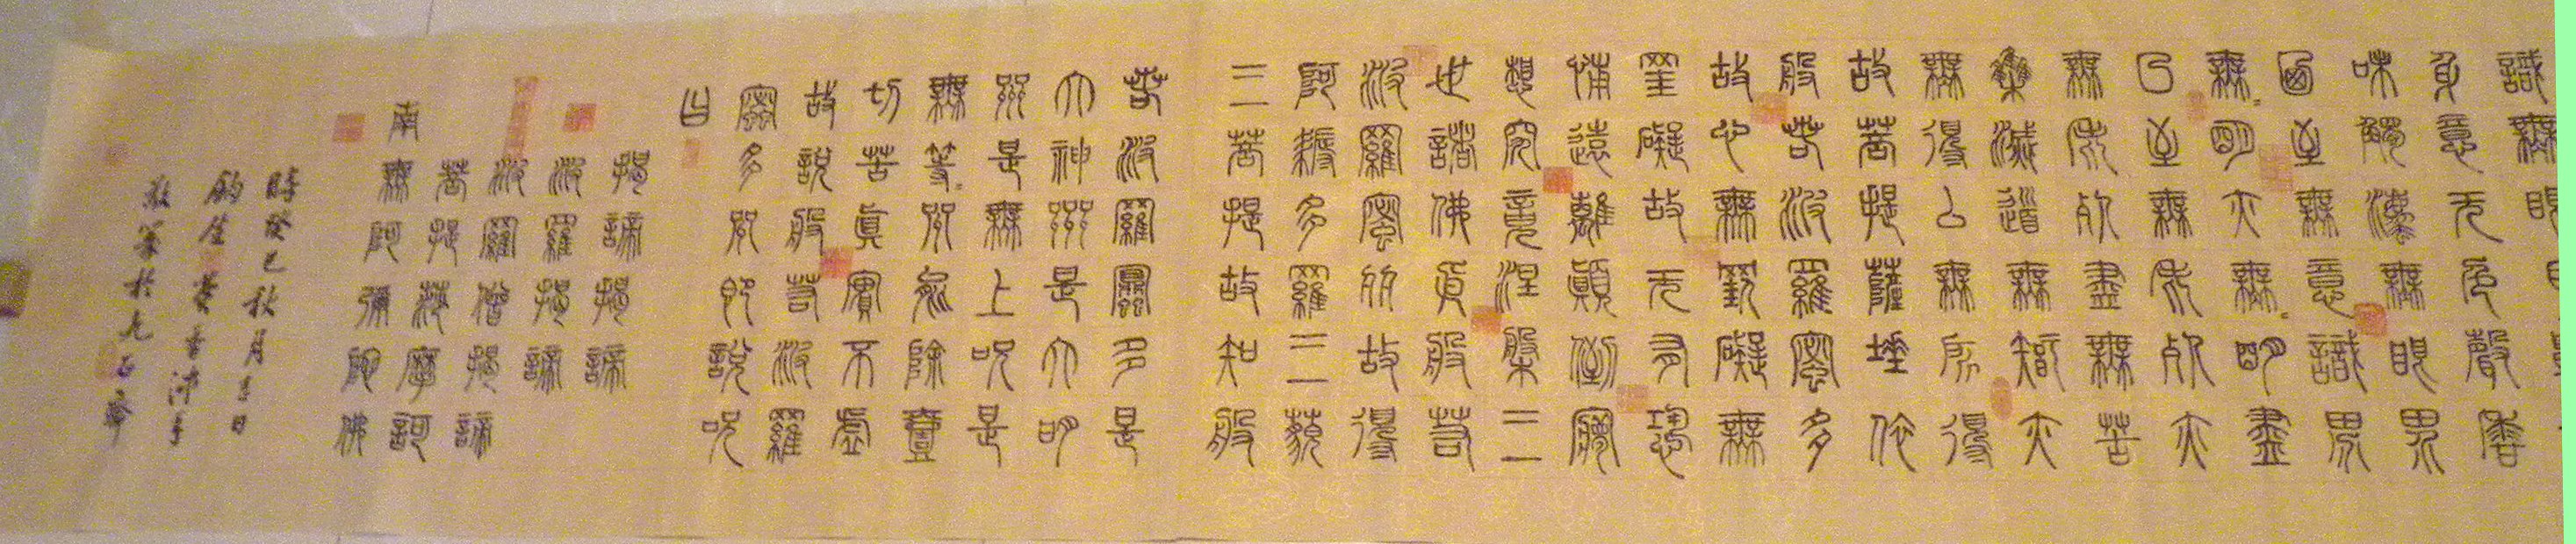 識無眼
身意无色聲香
味觸法無眼界
至無意識界
無明亦無明盡
至無老死亦
無老死盡無苦
集滅道無智亦
無得以無所得
故菩提薩埵依
般若波羅蜜多
故心無罣礙無
罣礙故无有恐
怖遠離顛倒夢
想究竟涅槃三
世諸佛依般若
波羅蜜多故得
阿耨多羅三藐
三菩提故知般
若波羅蜜多是
大神咒是大明
咒是無上咒是
無等等咒能除壹
切苦真實不虛
故說般若波羅
蜜多咒即說咒
曰
揭諦揭諦
波羅揭諦
波羅僧揭諦
菩提薩摩訶
南無阿彌陀佛
時癸巳秋月吉日
沐手
敬篆於